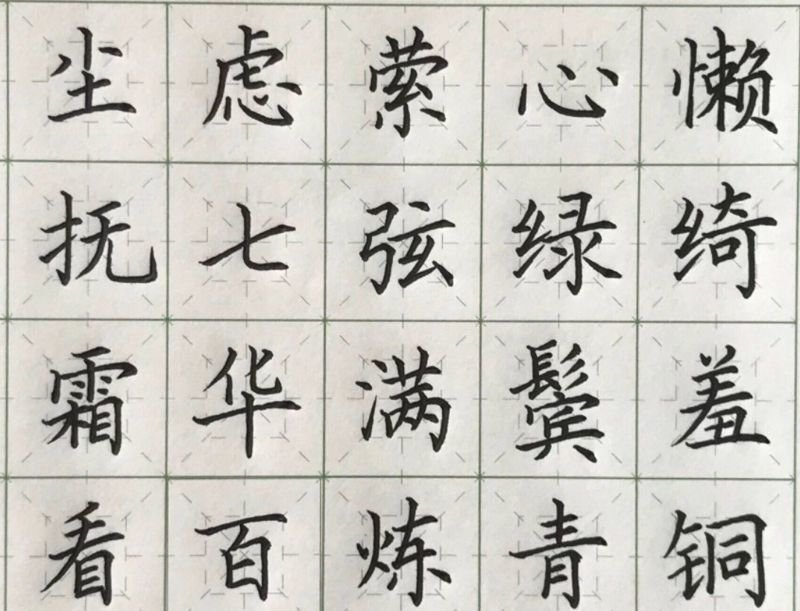 尘虑萦心懒
抚七弦绿绮
霜华满鬓羞
看百炼青铜